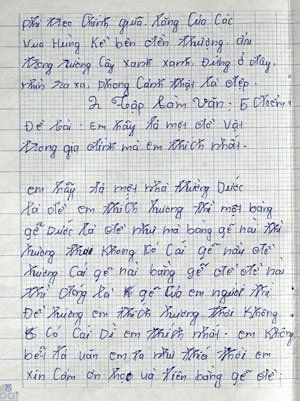 phi theo chính giữa. Lăng của các
Vua Hùng Kề bên đền thượng. ẩn
trong rừng cây xanh xanh. Đứng ở đây,
nhìn ra xa, phong cảnh thật là đẹp.
2 Tập Lam Văn: 5 điểm
Đề bài: Em hãy tả một đồ vật
trong gia đình mà em thích nhất.
em hãy tả một nhà thường Dước
là đề em thích hương thì một bang
gế Dước là đề như mà bang gế nai thì
hường không có cái gế nàu đề
hường cai gế nai bang gế đề đề nai
thì là gế em người thì
Đề hương em thích hương không
có cái Dì em thích nhất. em không
biết tả văn em ta như thôi em
xin cảm ơn và tiên bang gế đề: